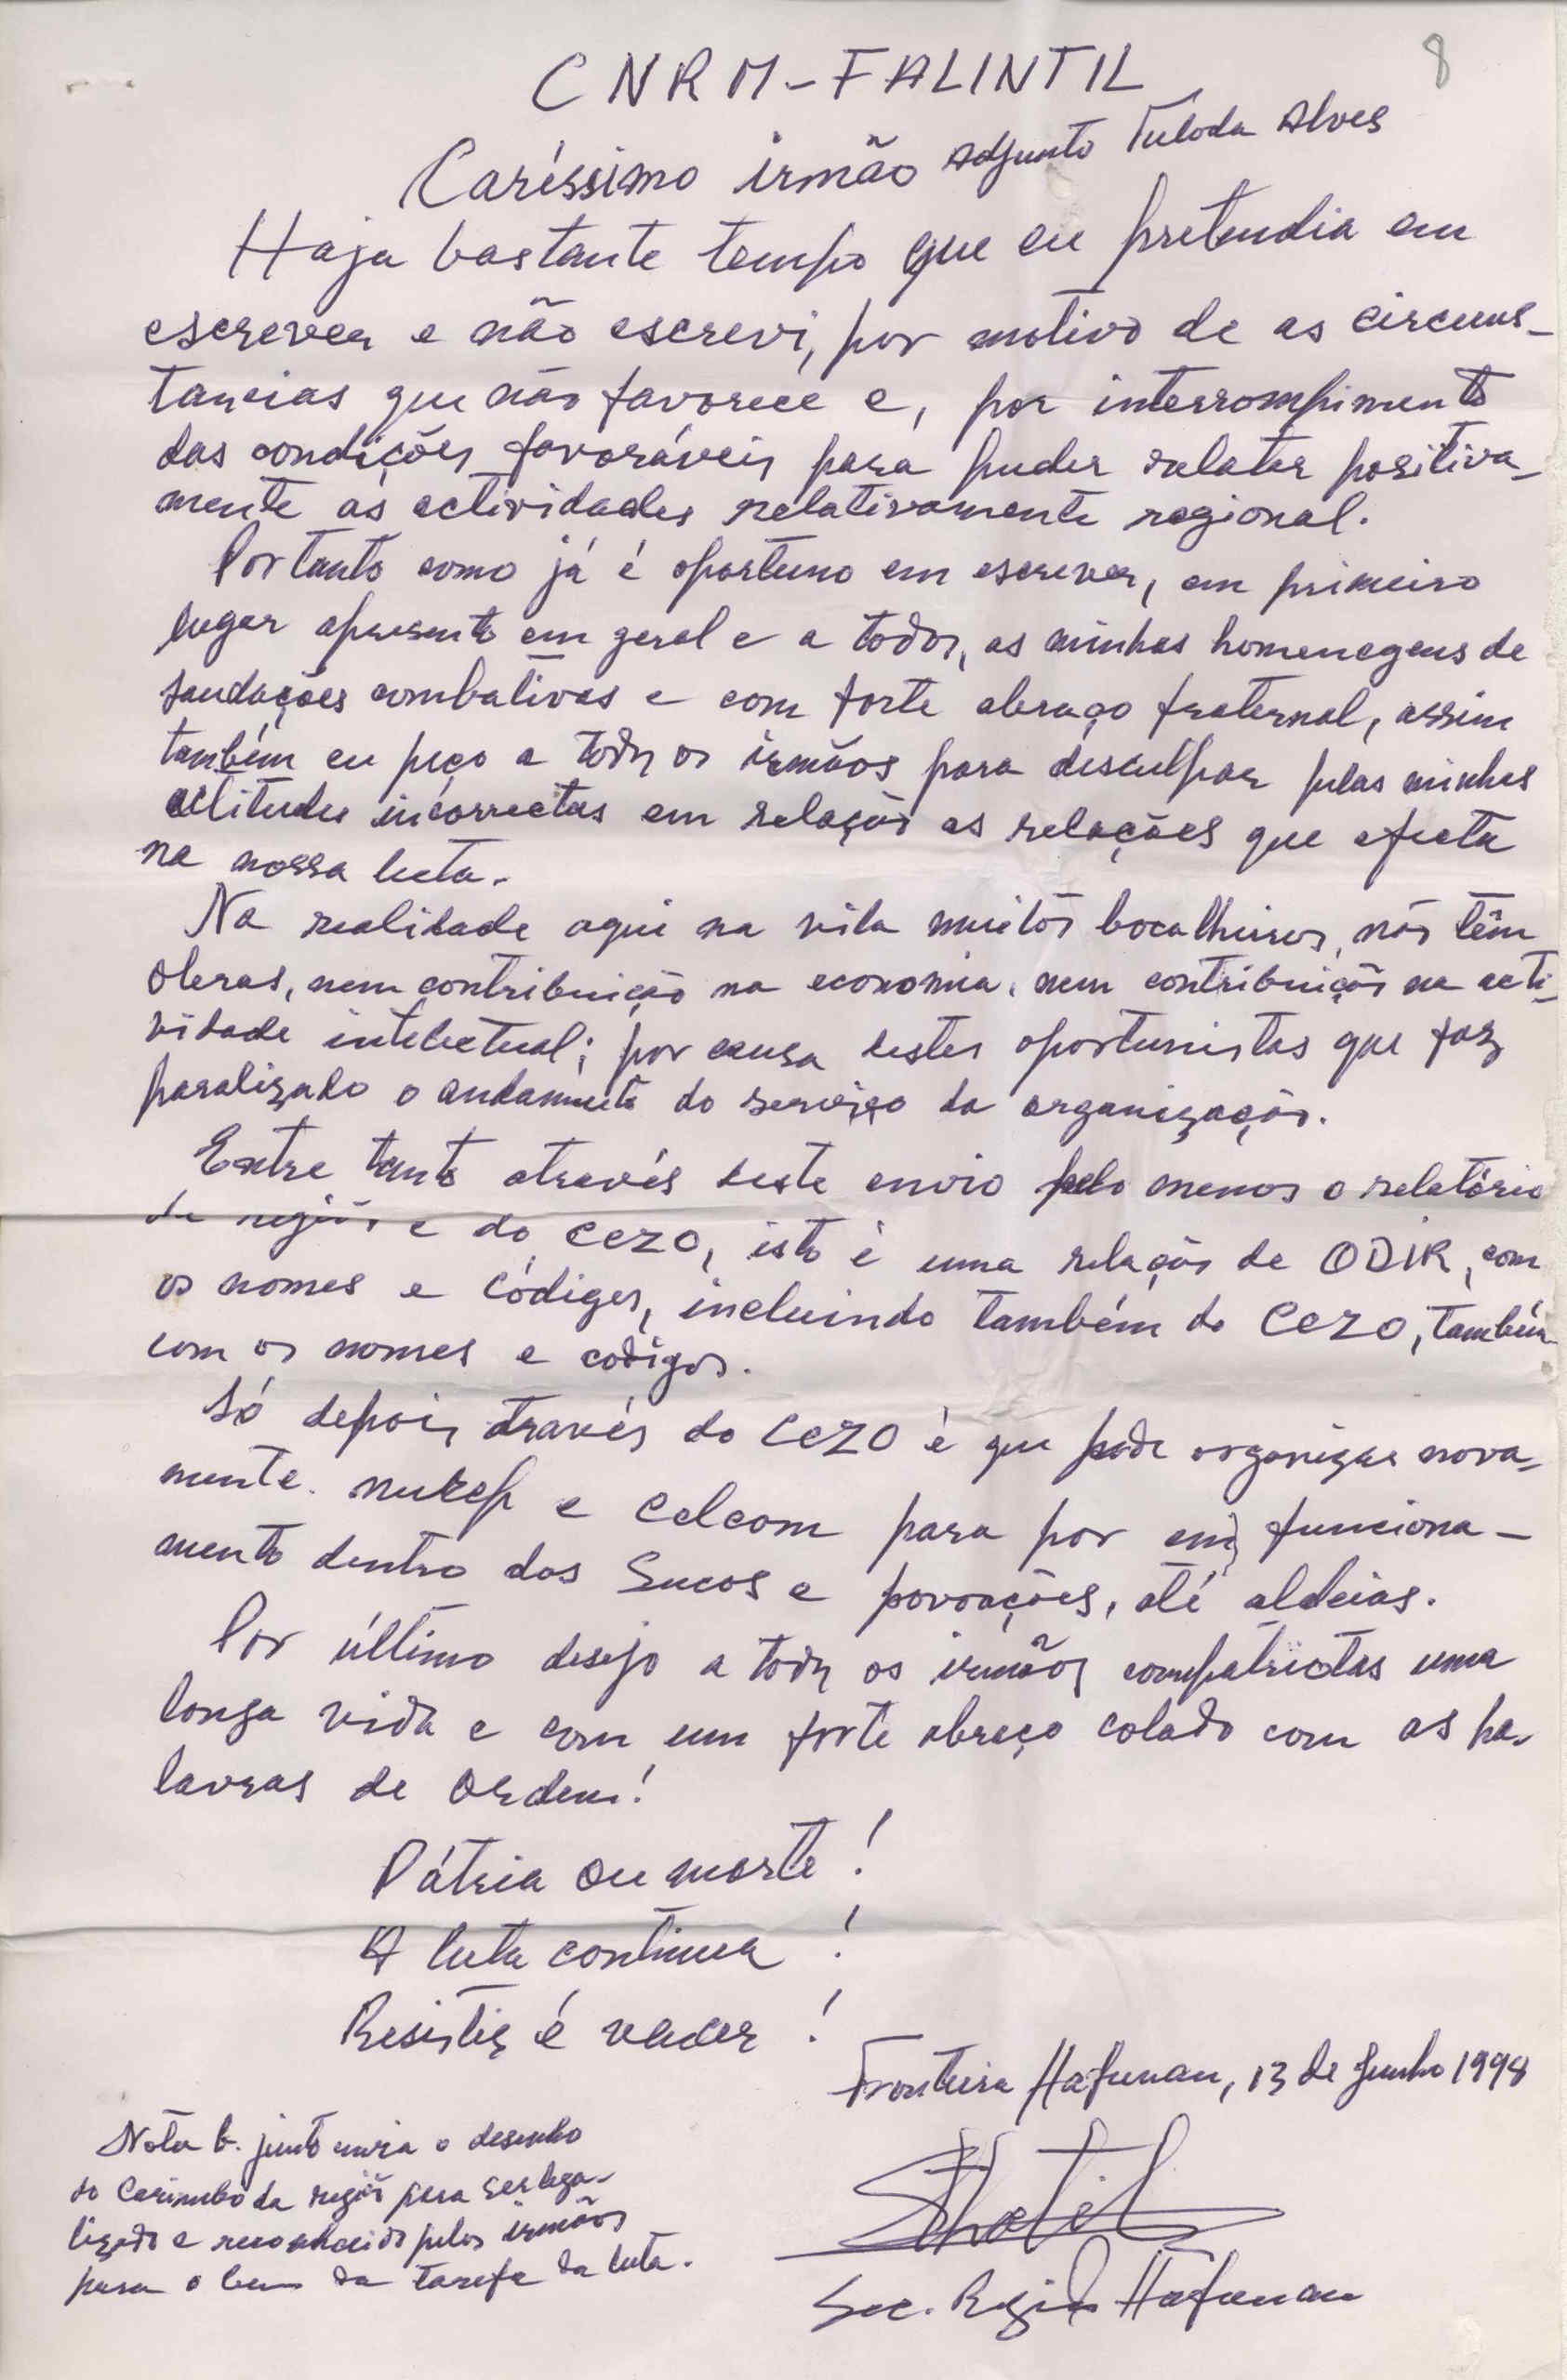 8
CNRM-FALINTIL
Caríssimo irmão Adjunto Tuloda Alves
Haja bastante tempo que eu pretendia em
escrever e não escrevi, por motivo de as circuns-
tancias que não favorece e, por interrompimento
das condições favoráveis para puder relatar positiva-
mente as actividades relativamente regional.
Portanto como já é oportuno em escrever, em primeiro
lugar apresento em geral e a todos, as minhas homenagens de
saudações combativas e com forte abraço fraternal, assim
também eu peço a todos os irmãos para desculpar pelas minhas
actitudes incorrectas em relação as relações que afecta
na nossa luta.
Na realidade aqui na vila muitos bocalheiros, não têm
obras, nem contribuição na economia, nem contribuição na acti-
vidade intelectual; por causa destes oportunistas que faz
paralizado o andamento do serviço da organização.
Entre tanto através deste envio pelo menos o relatório
da região e do CEZO, isto é uma relação de ODIR, com
os nomes e códigos, incluindo também do CEZO, também
com os nomes e codigos.
Só depois através do CEZO é que pode organizar nova-
mente. nurep e celcom para por em funciona-
mento dentro dos Sucos e povoações, até aldeias.
Por último desejo a todos os irmãos compatriotas uma
longa vida e com um forte abraço colado com as pa-
lavras de ordem!
Pátria ou morte!
A luta continua!
Resistir é vencer!
Fronteira Hafunau, 13 de Junho 1998
Nota b. junto envia o desenho
do Carimbo da região para ser lega-
lizado e reconhecido pelos irmãos
para o bem da tarefa da luta.
Sec. Região Hafunau